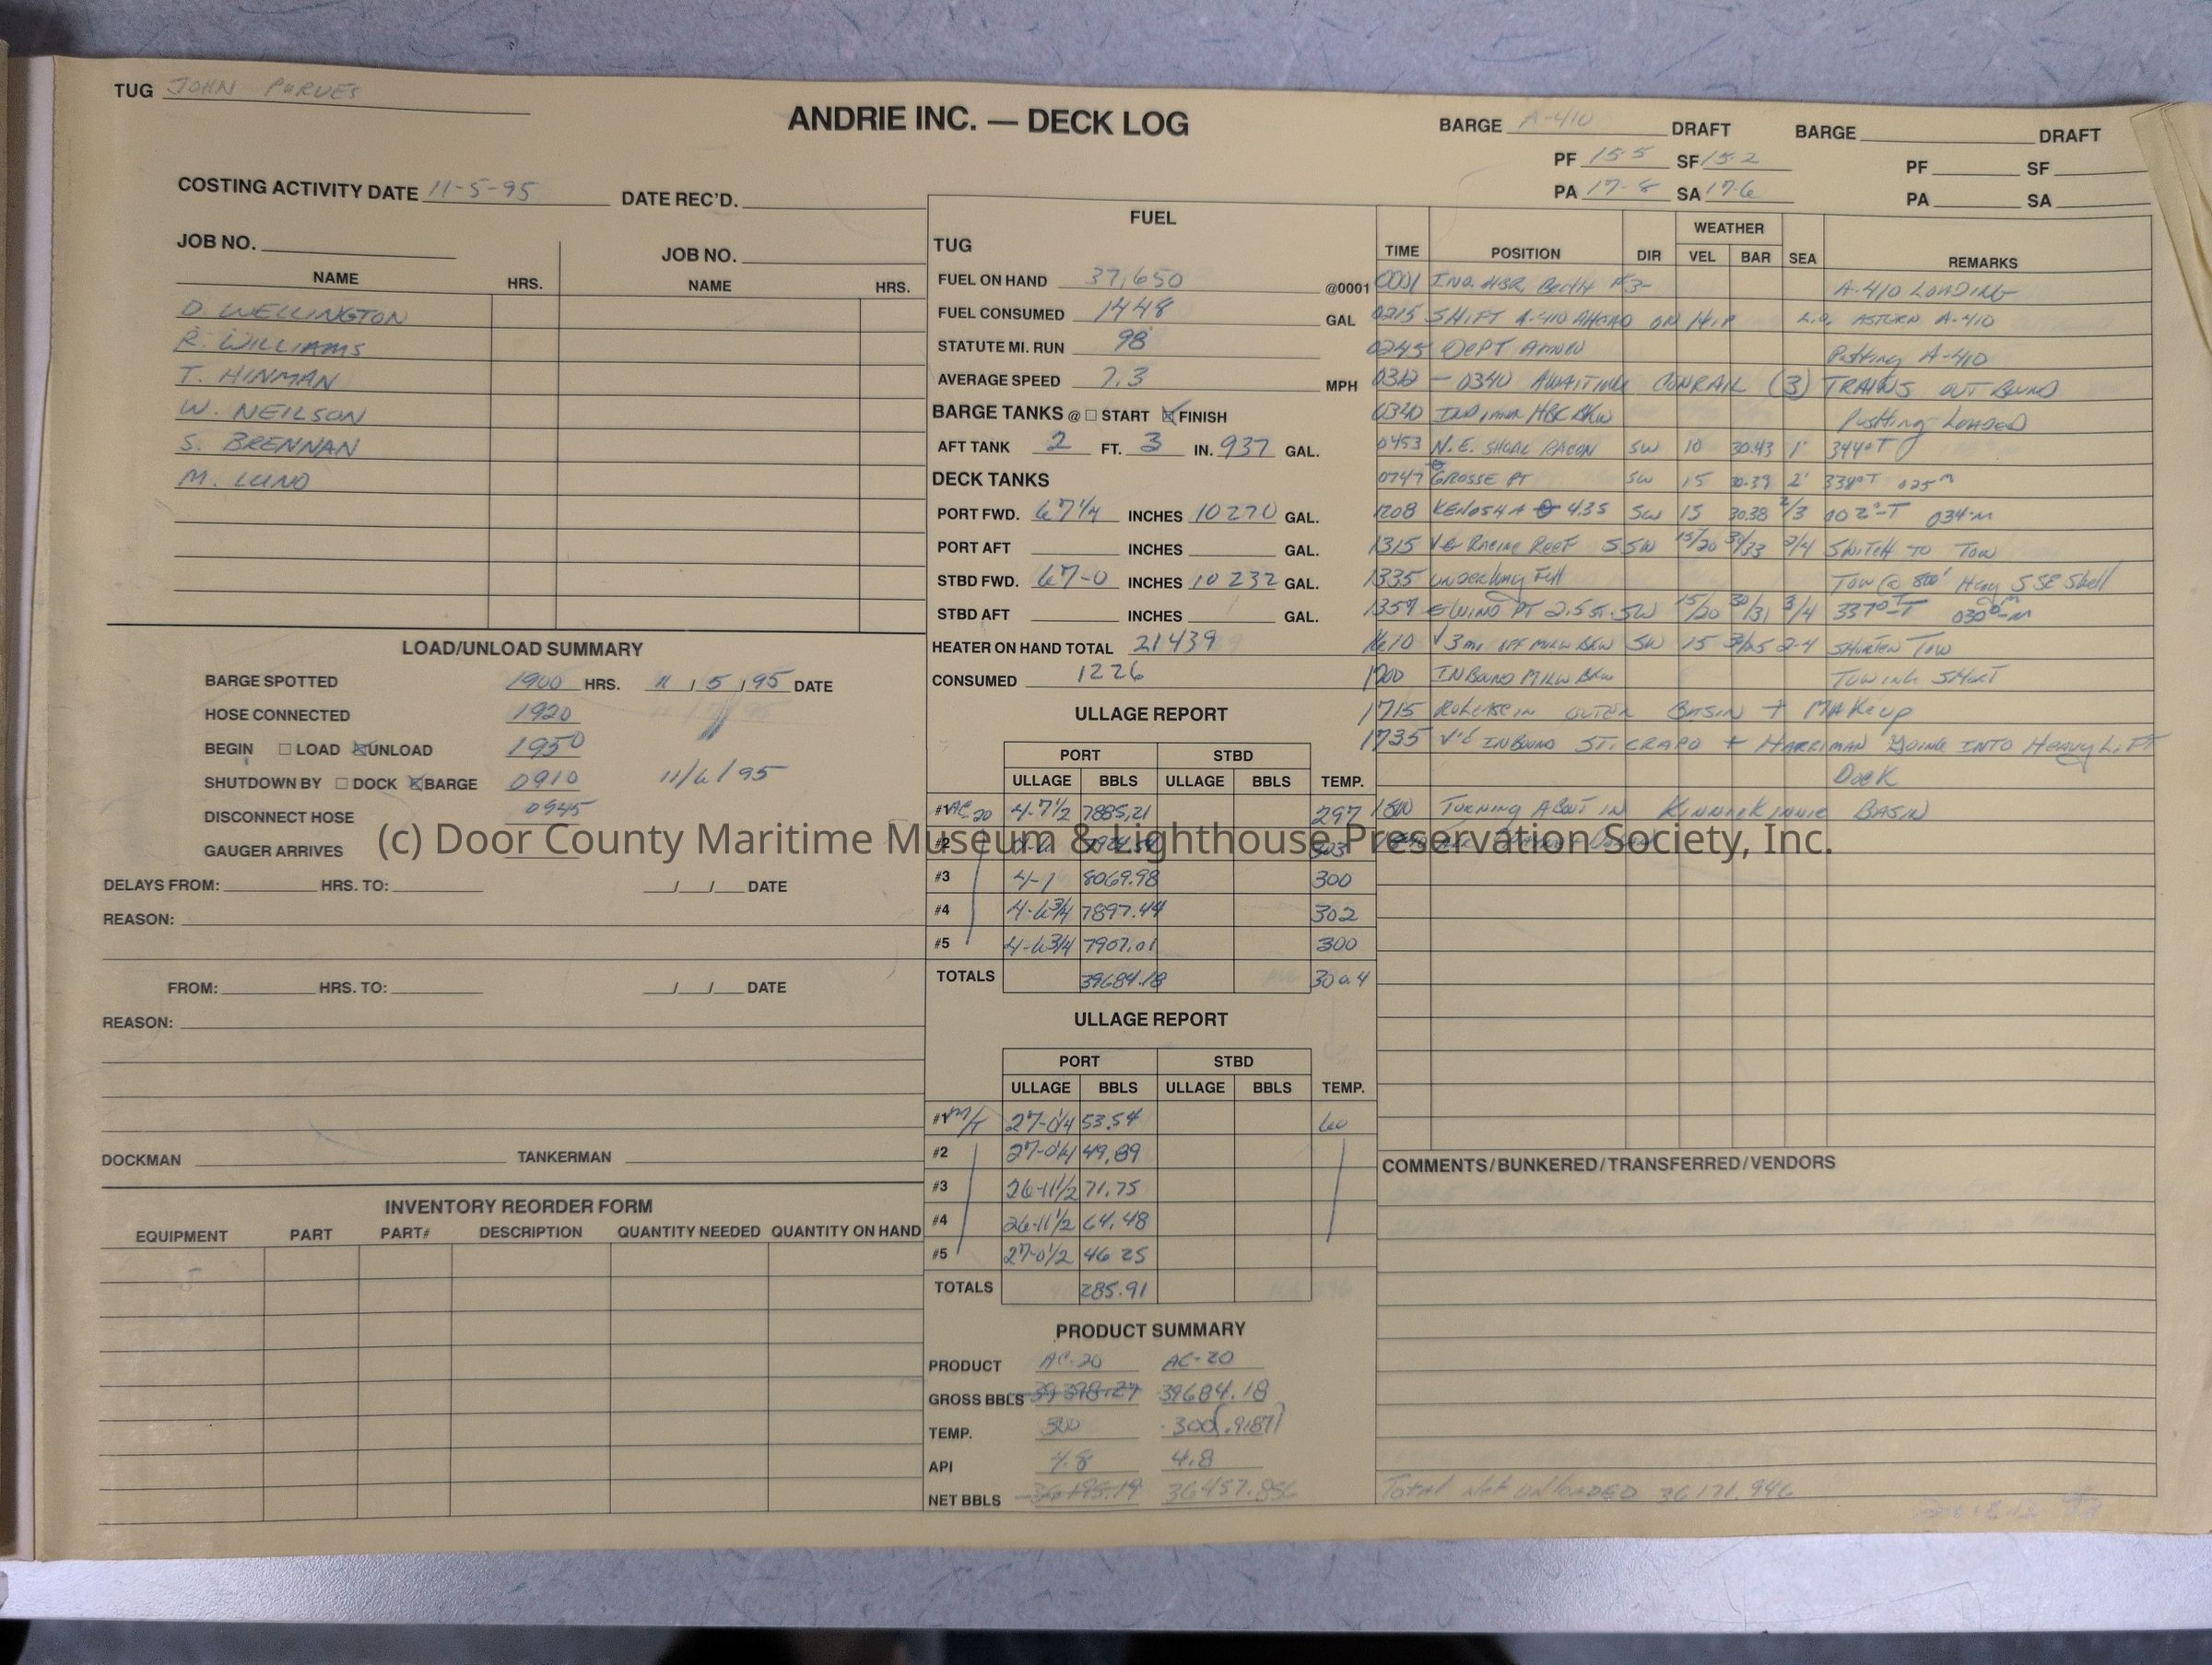 TUG JOHN PURVES
ANDRIE INC. — DECK LOG
BARGE A-410 DRAFT BARGE DRAFT
PF 15-5 SF 15-2 PF SF
PA 17-8 SA 17-6 PA SA
COSTING ACTIVITY DATE 11-5-95 DATE REC'D.
JOB NO. JOB NO.
NAME HRS. NAME HRS.
D. WELLINGTON
R. WILLIAMS
T. HINMAN
W. NEILSON
S. BRENNAN
M. LUND
LOAD/UNLOAD SUMMARY
BARGE SPOTTED 1900 HRS. 11/5/95 DATE
HOSE CONNECTED 1920
BEGIN LOAD UNLOAD 1950
SHUTDOWN BY DOCK BARGE 0910 11/6/95
DISCONNECT HOSE 0945
GAUGER ARRIVES
DELAYS FROM: HRS. TO: / / DATE
REASON:
FROM: HRS. TO: / / DATE
REASON:
DOCKMAN TANKERMAN
INVENTORY REORDER FORM
EQUIPMENT PART PART# DESCRIPTION QUANTITY NEEDED QUANTITY ON HAND
FUEL
TUG
FUEL ON HAND 37,650 @0001
FUEL CONSUMED 1448 GAL
STATUTE MI. RUN 98
AVERAGE SPEED 7.3 MPH
BARGE TANKS @ START FINISH
AFT TANK 2 FT. 3 IN. 937 GAL.
DECK TANKS
PORT FWD. 67 1/4 INCHES 10270 GAL.
PORT AFT INCHES GAL.
STBD FWD. 67-0 INCHES 10232 GAL.
STBD AFT INCHES GAL.
HEATER ON HAND TOTAL 21439
CONSUMED 1226
ULLAGE REPORT
PORT STBD
ULLAGE BBLS ULLAGE BBLS TEMP.
#1 AC-20 4-7 1/2 7885.21 297
#2 303
#3 4-1 8069.98 300
#4 4-6 3/4 7897.44 302
#5 4-6 3/4 7907.01 300
TOTALS 39684.18 300.4
ULLAGE REPORT
PORT STBD
ULLAGE BBLS ULLAGE BBLS TEMP.
#1 M/T 27-0 1/4 53.54 60
#2 27-0 1/4 49.89
#3 26-11 1/2 71.75
#4 26-11 1/2 64.48
#5 27-0 1/2 46 25
TOTALS 285.91
PRODUCT SUMMARY
PRODUCT AC-20 AC-20
GROSS BBLS 39398.27 39684.18
TEMP. 300 300 (.9187)
API 4.8 4.8
NET BBLS 36195.19 36457.856
WEATHER
TIME POSITION DIR VEL BAR SEA REMARKS
0001 IND. HBR, Berth #3- A-410 LOADING
0215 SHIFT A-410 AHEAD ON HIP ASTERN A-410
0245 DEPT AMOCO Pushing A-410
0312 - 0340 AWAITING CONRAIL (3) TRAINS OUT BOUND
0340 HBR BKW Pushing LOADED
0453 N.E. SHOAL RACON SW 10 30.43 1' 344°T
0747 GROSSE PT SW 15 30.39 2' 338°T 025 M
1208 KENOSHA 4.35 SW 15 30.38 2/3 002°-T 034-M
1315 Racine Reef SSW 15/20 30/33 2/4 SWITCH TO TOW
1335 underway Full Tow @ 800' Heavy SSE Swell
1357 WIND PT 2.5 SW 15/20 30/31 3/4 337°-T 030°-M
1610 3 mi OFF MILW BKW SW 15 30/25 2-4 SHORTEN TOW
1700 INBOUND MILW BKW TOWING SHORT
1715 Release in OUTER BASIN + MAKE up
1735 INBOUND ST. CRAPO + HARRIMAN GOING INTO HEAVY LIFT
DOCK
TURNING ABOUT IN KINNICKINNIC BASIN
COMMENTS/BUNKERED/TRANSFERRED/VENDORS
Total Net UNLOADED 36171.946
(c) Door County Maritime Museum & Lighthouse Preservation Society, Inc.